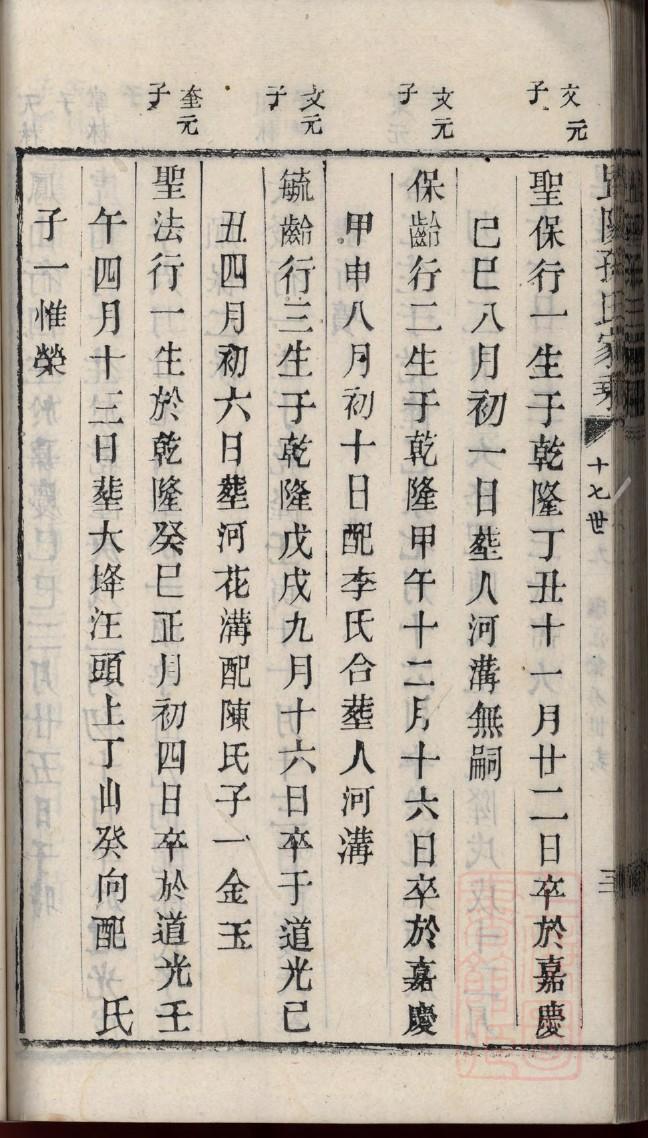 陽孫氏家乘 十七世 三
文元
子
聖保行一生于乾隆丁丑十一月廿二日卒於嘉慶
己巳八月初一日塟人河溝無嗣
文元
子
保齡行二生于乾隆甲午十二月十六日卒於嘉慶
甲申八月初十日配李氏合塟人河溝
文元
子
毓齡行三生于乾隆戊戌九月十六日卒于道光己
丑四月初六日塟河花溝配陳氏子一金玉
奎元
子
聖法行一生於乾隆癸巳正月初四日卒於道光壬
午四月十三日塟大埄汪頭上丁山癸向配　氏
子一惟榮